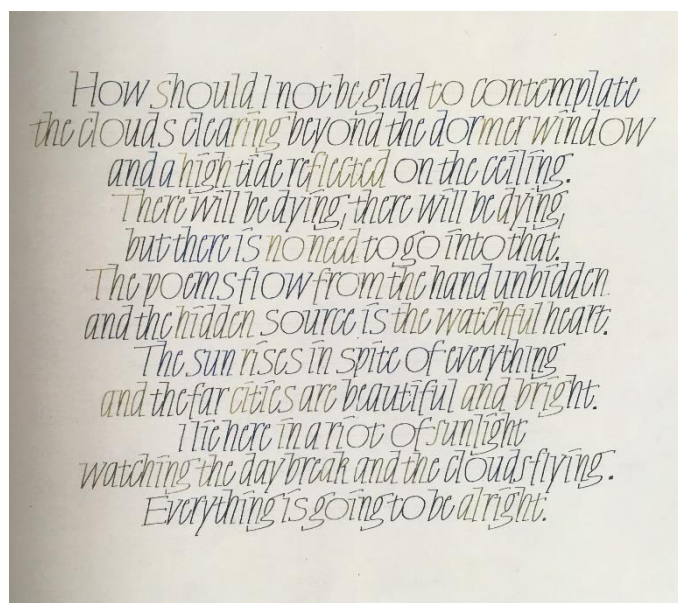 How should I not be glad to contemplate
the clouds clearing beyond the dormer window
and a high tide reflected on the ceiling.
There will be dying, there will be dying,
but there is no need to go into that.
The poems flow from the hand unbidden
and the hidden source is the watchful heart.
The sun rises in spite of everything
and the far cities are beautiful and bright.
I lie here in a riot of sunlight
watching the day break and the clouds flying.
Everything is going to be alright.